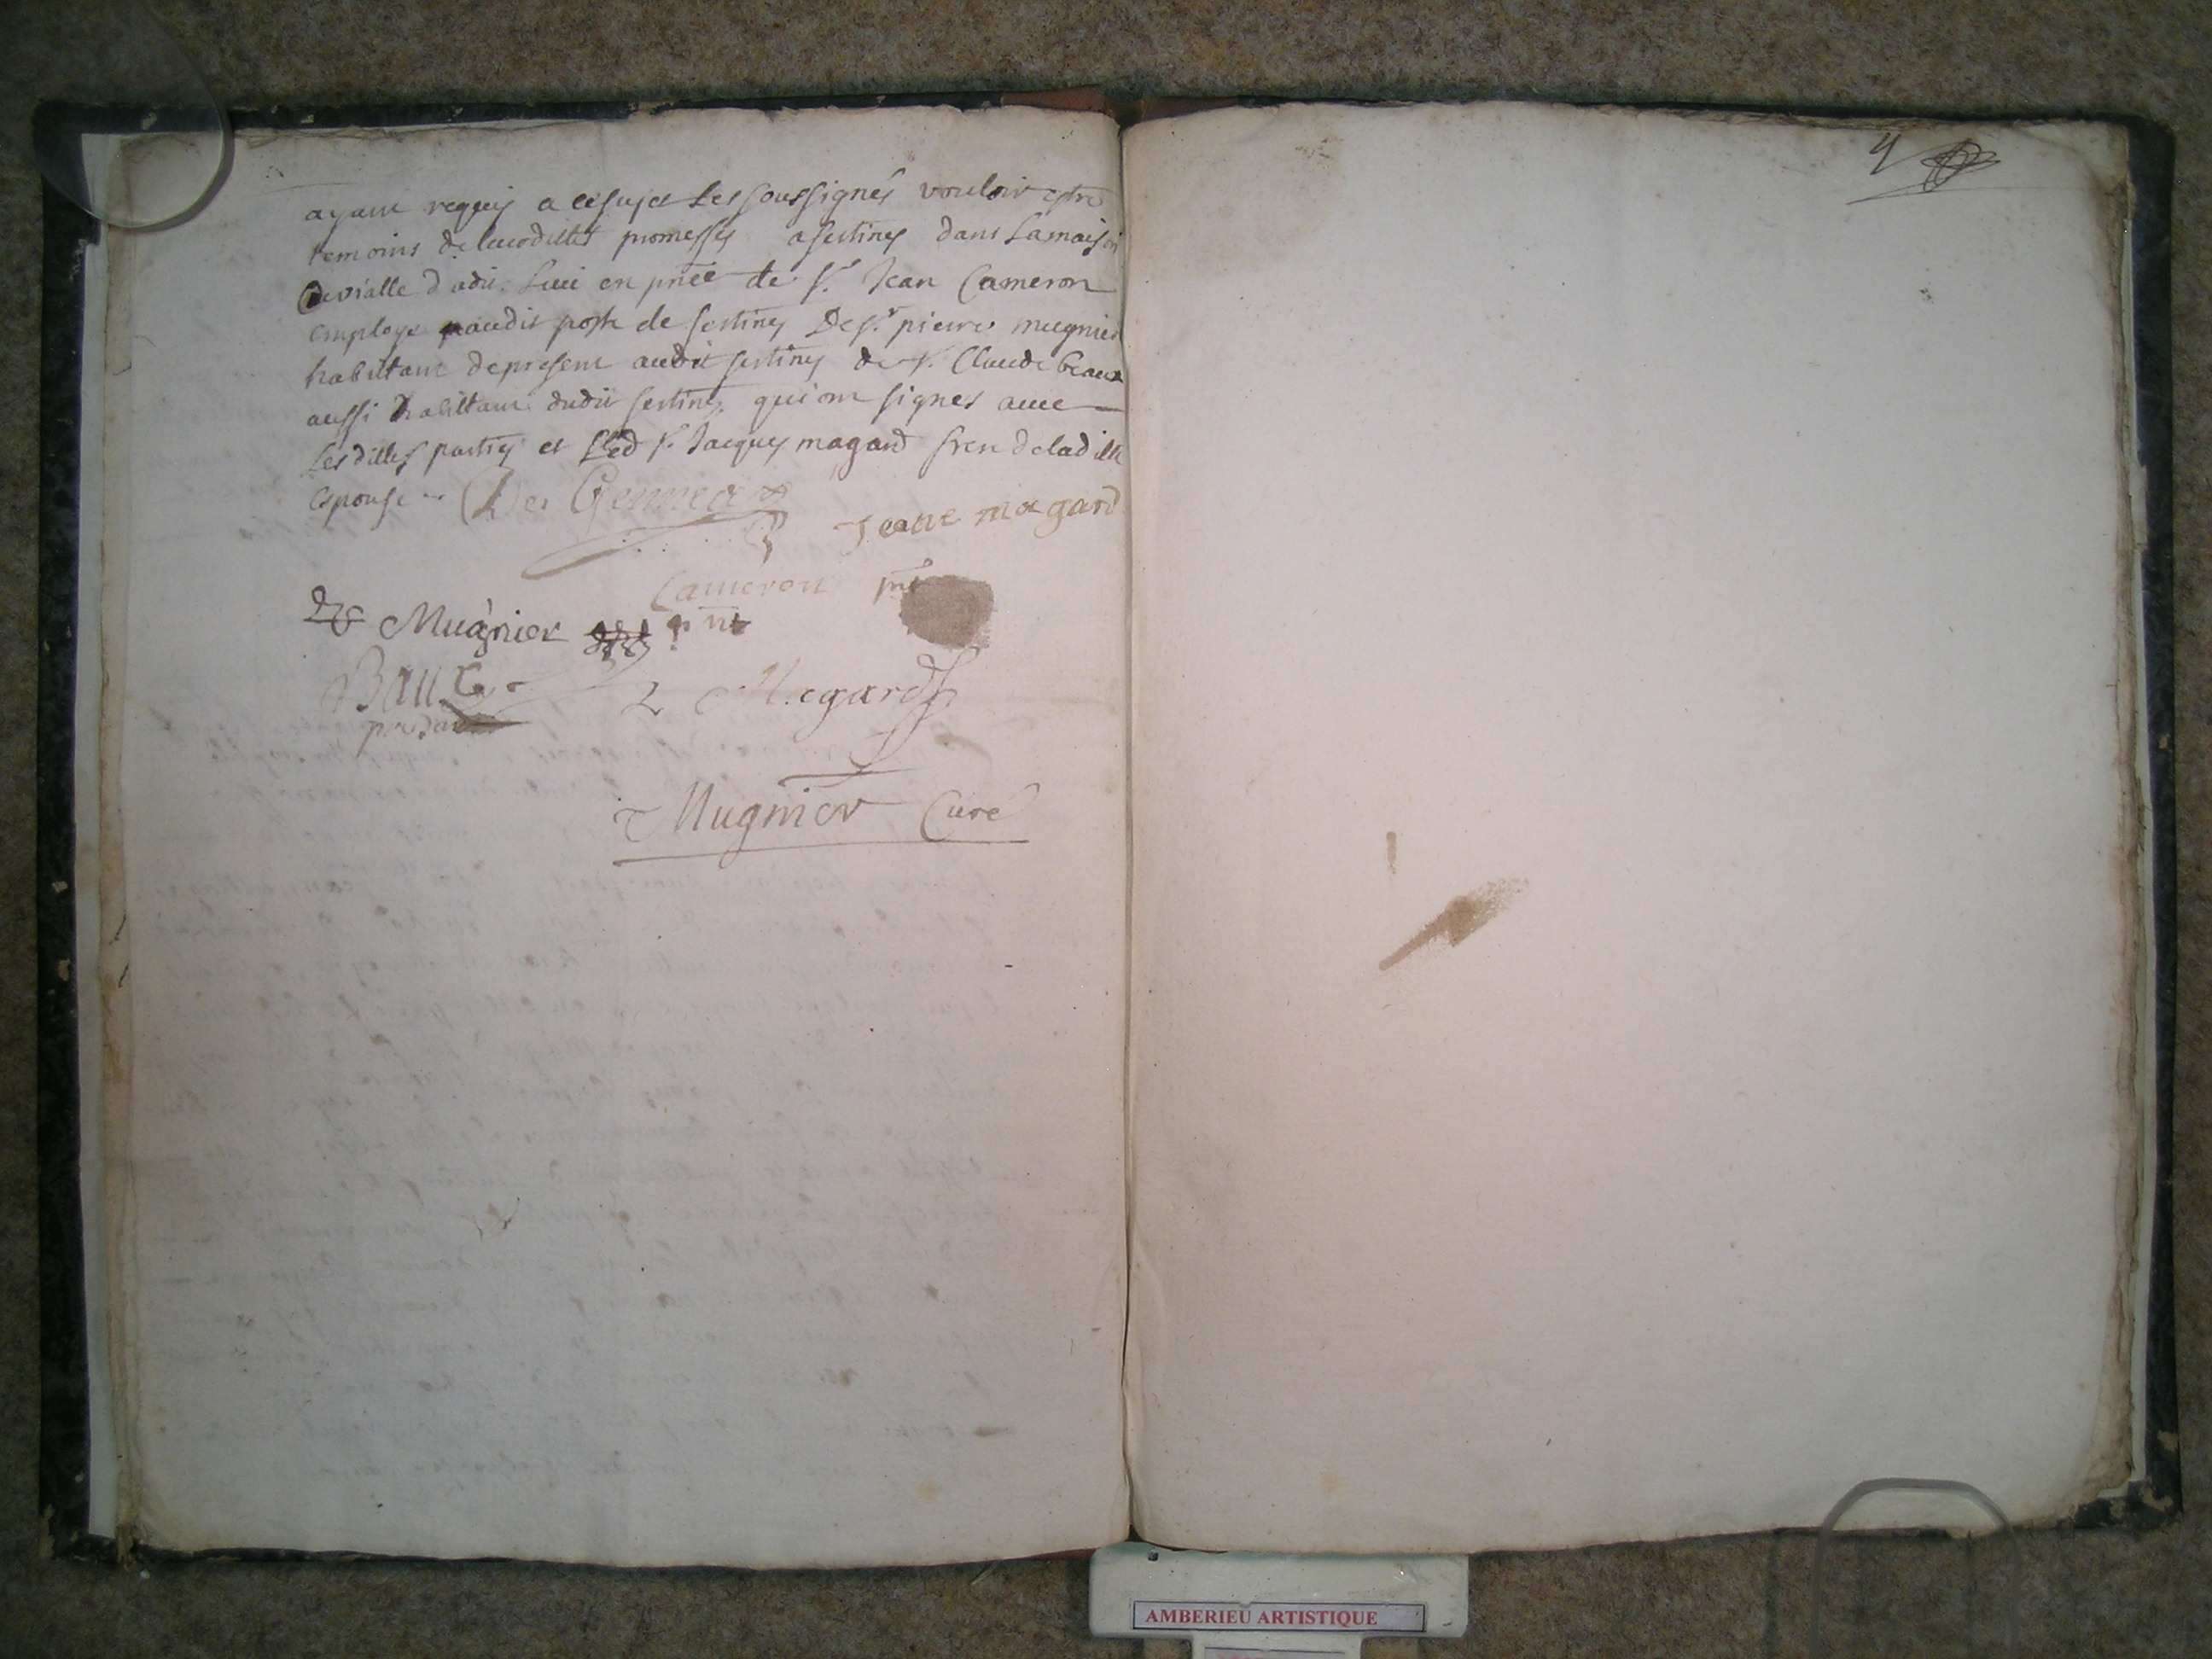 ayant requis a ce sujet les soussignés vouloir estre
temoins promesses a sertines dans La maison
en pnce de Sr. Jean Cameron
employe audit poste de sertines De sr. pierre mugnier
habittant de present audit sertines de sr. Claude beaux
aussi habittant dudit sertines qui ont signes avec
Les dittes parties et Led sr. Jacques magard frere de laditte
espouse
4
Jeane magard
Cameron pnt
Mugnier pnt
Baux
Megard
Mugnier Curé
AMBERIEU ARTISTIQUE